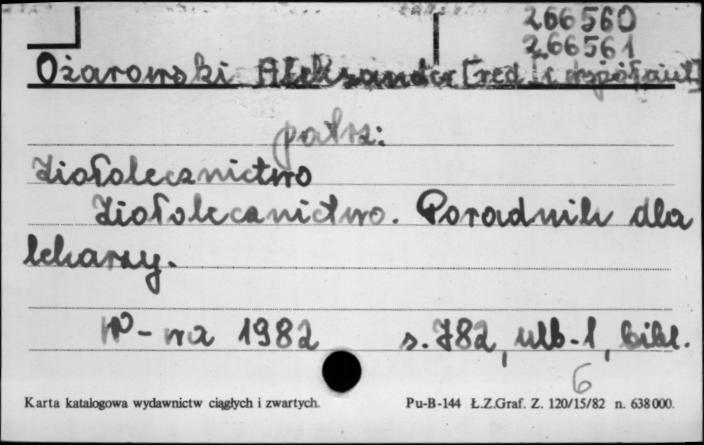 266560
266561
Ożarowski Aleksander [red. i współaut]
patrz:
Ziołolecznictwo
Ziołolecznictwo. Poradnik dla
lekarzy.
W-wa 1982 s. 782, ulb-1, bibl.
6
Karta katalogowa wydawnictw ciągłych i zwartych. Pu-B-144 Ł.Z.Graf. Z. 120/15/82 n. 638 000.